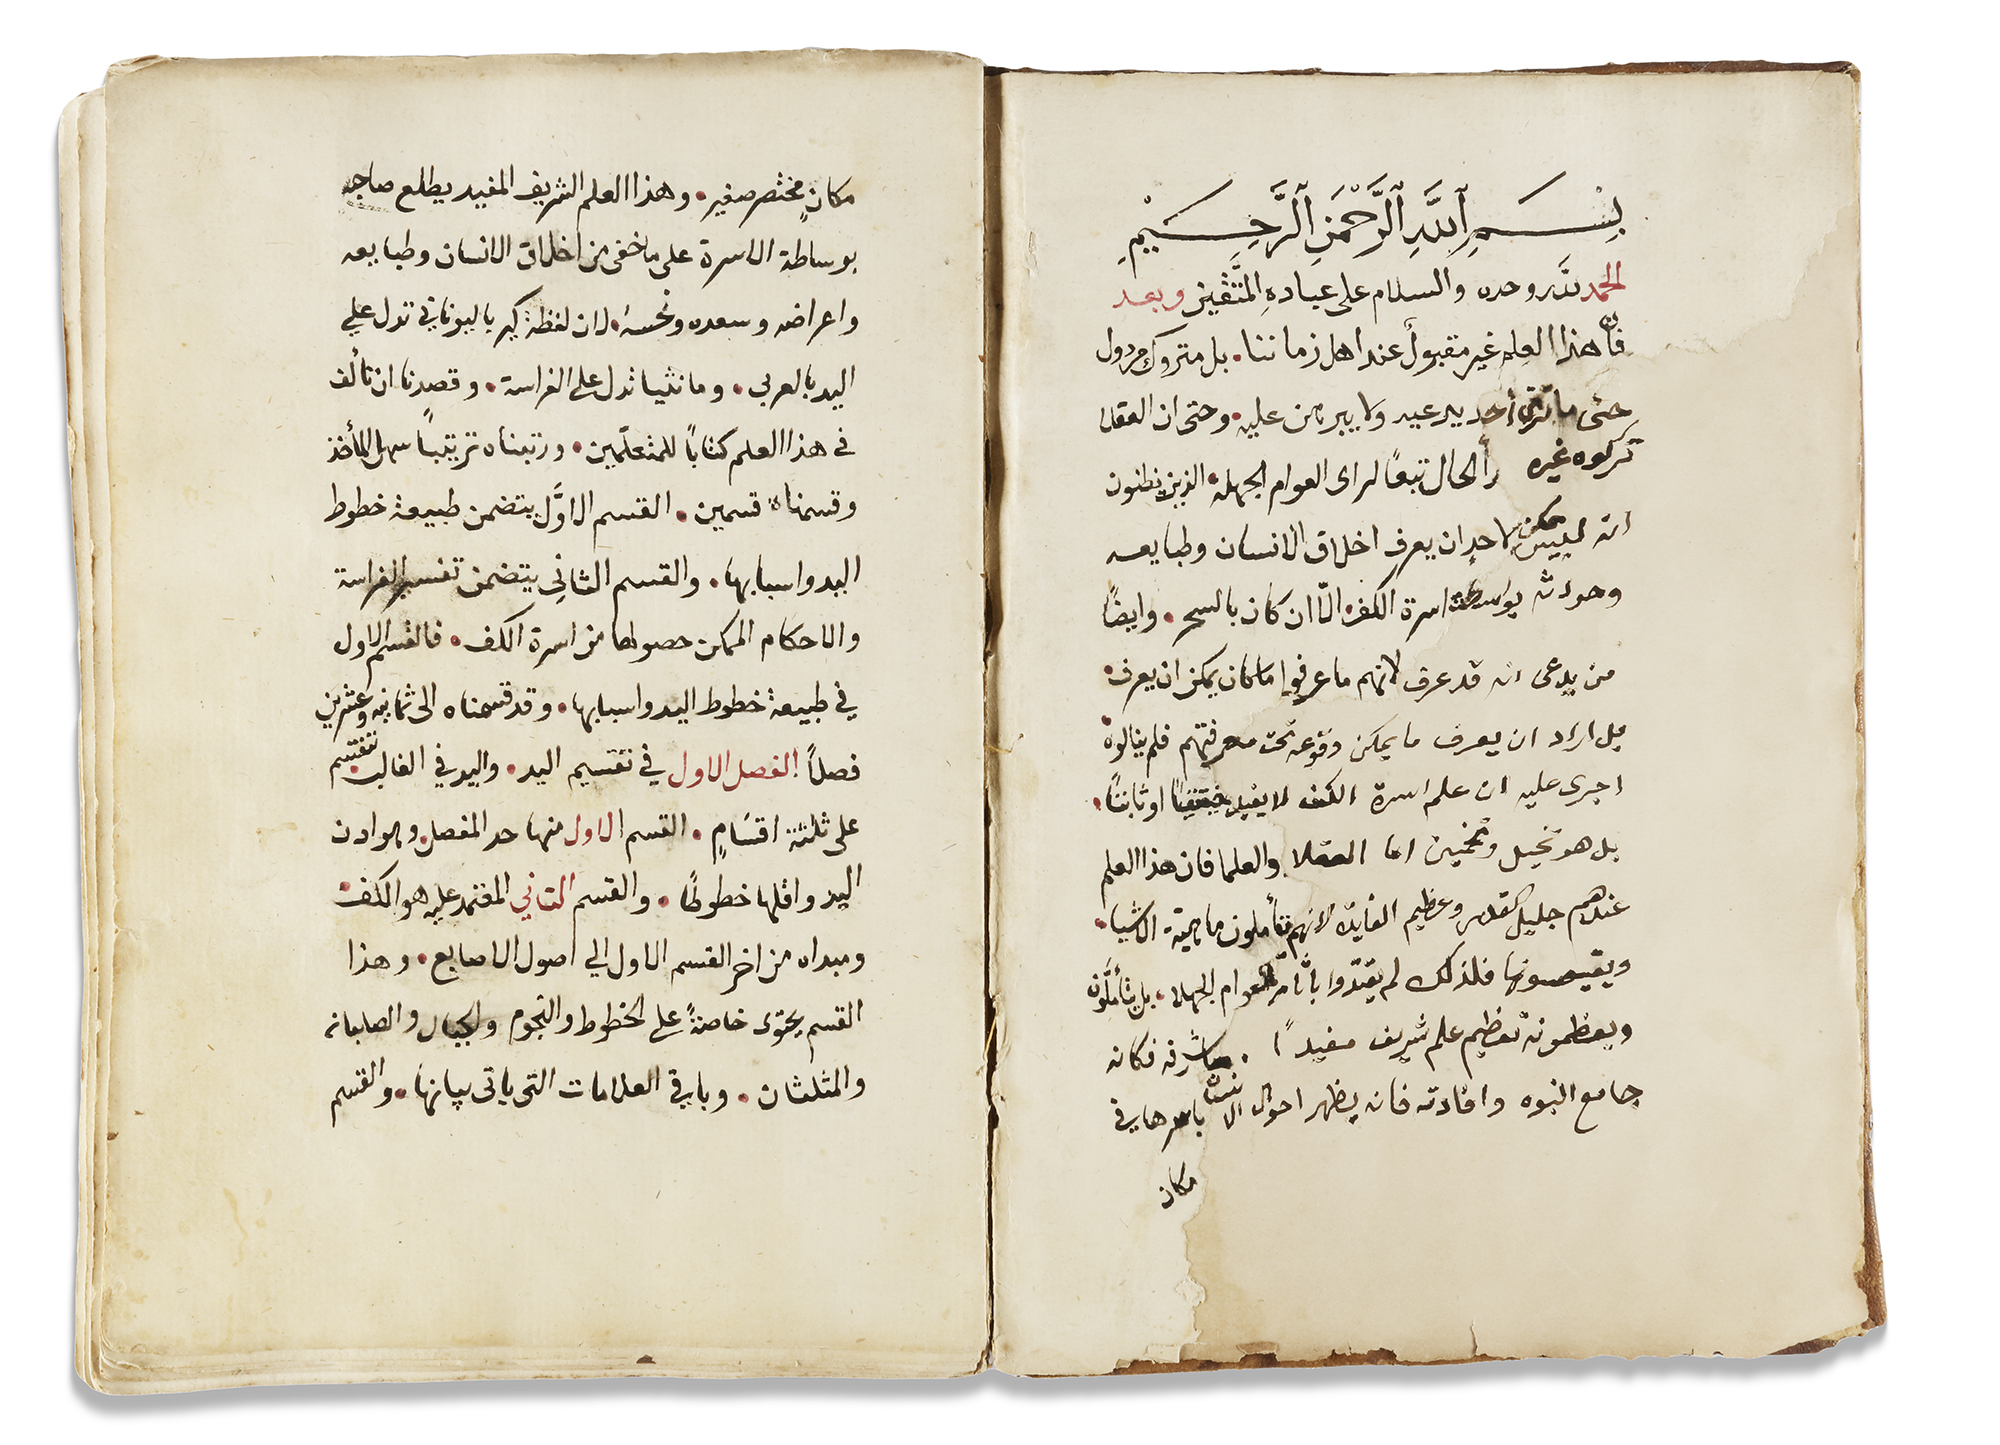 بِسْمِ ٱللَّهِ ٱلرَّحْمَنِ ٱلرَّحِيمِ
الحمد لله وحده والسلام على عباده المتّقين وبعد
فان هذا العلم غير مقبولٌ عند اهل زماننا. بل متروك مردول
حتى ما ترى أحد يدعيه ولا يبرهن عليه. وحتى ان العقلا
تركوه غيره الحال تبعًا لراى العوام الجهلة. الذين يظنون
انه ليس يمكن لاحدٍ ان يعرف اخلاق الانسان وطبايعه
وحوادثه بواسطة اسرة الكف الّا ان كان بالسحر. وايضًا
من يدعى انه قد عرف لانهم ما عرفوا ما كان يمكن ان يعرف.
بل اراد ان يعرف ما يمكن وقوعه تحت معرفتهم فلم ينالوه
اجرى عليه ان علم اسرة الكف لا يفيد او ثابتًا.
بل هو تخيل وتخمين اما العقلا والعلما فان هذا العلم
عندهم جليل القدر وعظيم الفايده لانهم يتأملون ماهية الاشيا.
ويقيسونها فلذلك لم يقتدّوا العوام الجهلا. بل يتأملّونه
ويعظمونه تعظيم علم شريف مفيدًا. شرفه فكانه
جامع النبوه وافادته فانه يظهر احوال الانسان باسرها في
مكان
مكانٍ مختصر صغير. وهذا العلم الشريف المفيد يطلع صاحبه
بوساطة الاسرة على ما خفى من اخلاق الانسان وطبايعه
واعراضه وسعده ونحسه. لان لفظة كير باليوناني تدل علي
اليد بالعربي. ومانثيا تدل على الفراسة. وقصدنا ان نألف
في هذا العلم كتابًا للمتعلّمين. ورتبناه ترتيبًا سهل المأخذ
وقسمناه قسمين. القسم الاوّل يتضمن طبيعة خطوط
اليد واسبابها. والقسم الثانى يتضمن تفسير الفراسة
والاحكام الممكن حصولها من اسرة الكف. فالقسم الاول
في طبيعة خطوط اليد واسبابها. وقد قسمناه الى ثمانيه وعشرين
فصلاً الفصل الاول في تقسيم اليد. واليد في الغالب تنقسم
على ثلثة اقسامٍ. القسم الاول منها حد المفصل. وهو ادن
اليد واقلها خطوطًا. والقسم التاني المعتمد عليه هو الكف.
ومبداه من اخر القسم الاول الي اصول الاصابع. وهذا
القسم يحتوى خاصةً على الخطوط والنجوم والجبال والصلبانه
والمثلثان. وباقي العلامات التى ياتى بيانها. والقسم